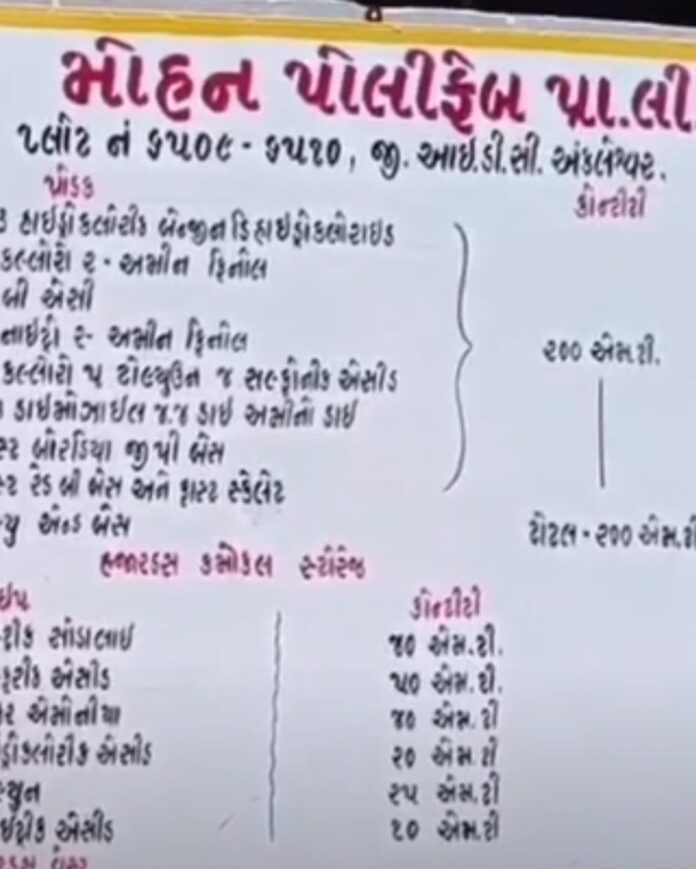 મોહન પોલીફેબ પ્રા.લી
પ્લોટ નં ૬૫૦૯ - ૬૫૧૦, જી.આઈ.ડી.સી. અંકલેશ્વર.
પ્રોડક
કોન્ટીટી
હાઈડ્રોકલોરીક બેન્જીન ડિહાઈડ્રોકલોરાઈડ
કલ્લોરો ૨ - અમીન ફિનોલ
બી એસી
નાઈટ્રો ૨ - અમીન ફિનોલ
૨૦૦ એમ.ટી.
કલ્લોરો ૫ ટોલ્યુઈન ૪ સલ્ફોનીક એસીડ
ડાઈમોઝાઈલ ૪.૪ ડાઈ અમીનો ડાઈ
બોરડિયા જી પી બેસ
રેડ બી બેસ અને ફાસ્ટ સ્કેલેટ
યુ એન્ડ બેસ
ટોટલ - ૨૦૦ એમ.ટી
હજારડસ કેમીકલ સ્ટોરેજ
કોન્ટીટી
સોડાલાઈ ૪૦ એમ.ટી.
એસીડ ૫૦ એમ.ટી.
એમોનીયા ૪૦ એમ.ટી
એસીડ ૨૦ એમ.ટી
૨૫ એમ.ટી
એસીડ ૧૦ એમ.ટી